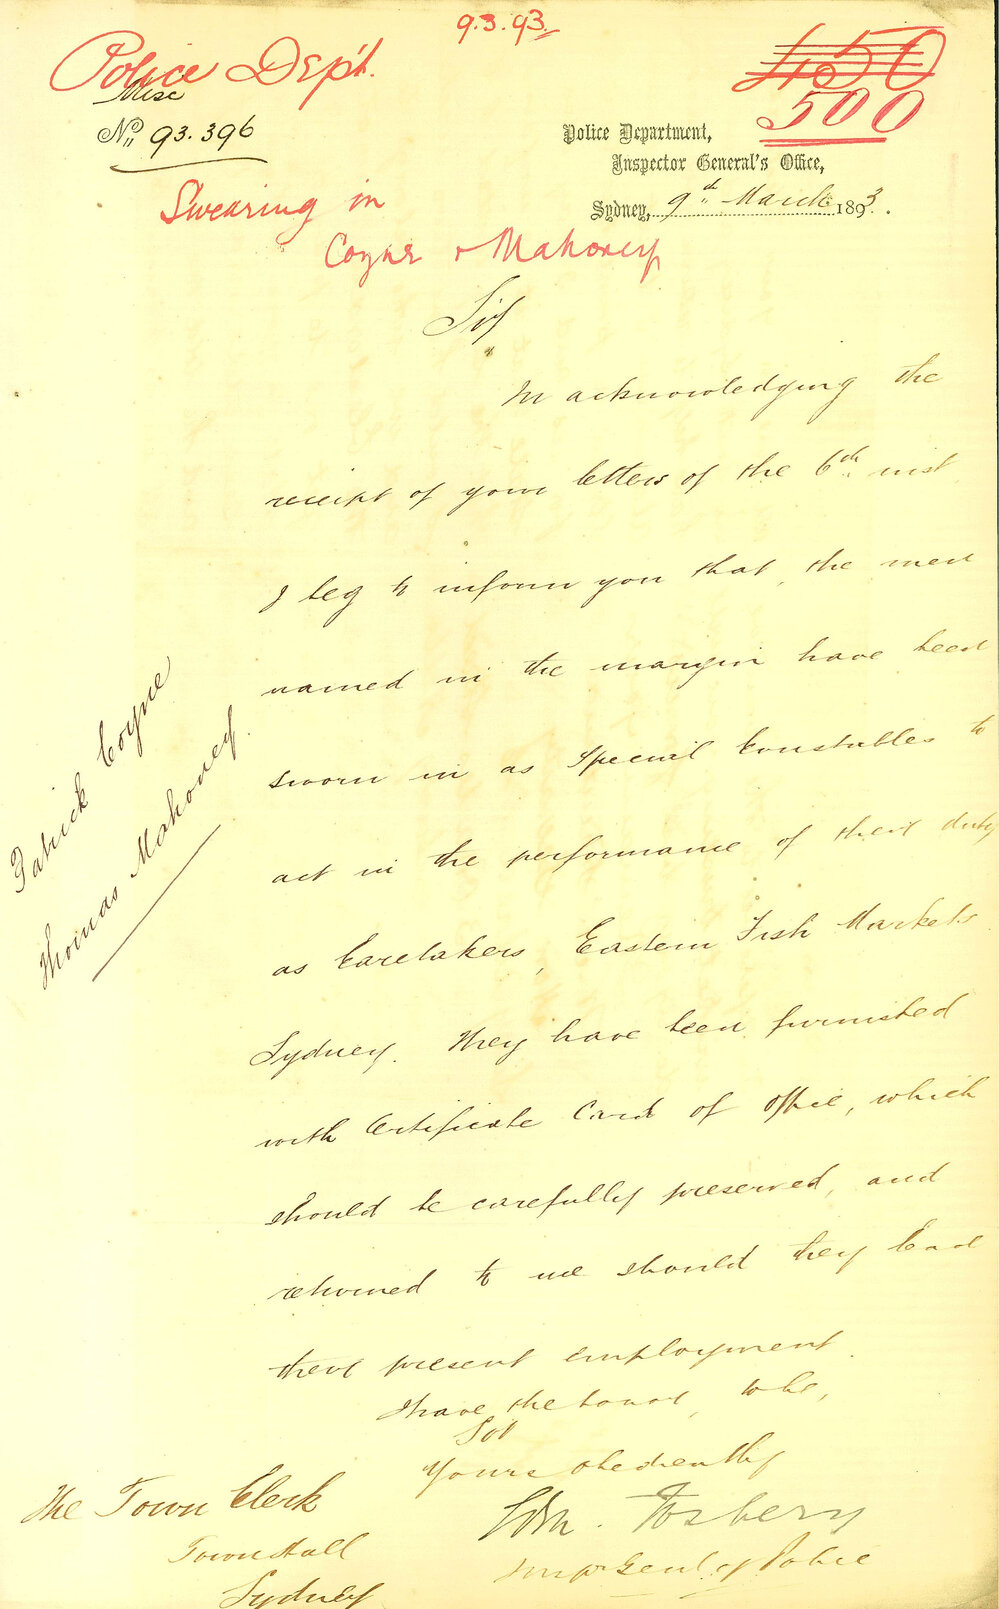 9.3.93
Police Dep't.
450
500
Misc
No. 93.396
Police Department,
Inspector General's Office,
Sydney, 9th March 1893.
Swearing in
Coyne & Mahoney
Sir
In acknowledging the
receipt of your letters of the 6th inst
I beg to inform you that, the men
named in the margin have been
Patrick Coyne
Thomas Mahoney
sworn in as Special Constables to
act in the performance of their duty
as Caretakers, Eastern Fish Markets
Sydney. They have been furnished
with Certificate Card of Office, which
should be carefully preserved, and
returned to me should they lead
their present employment.
I have the honor to be,
Sir
Yours obediently
Edm. Fosbery
Insp Genl of Police
The Town Clerk
Town Hall
Sydney